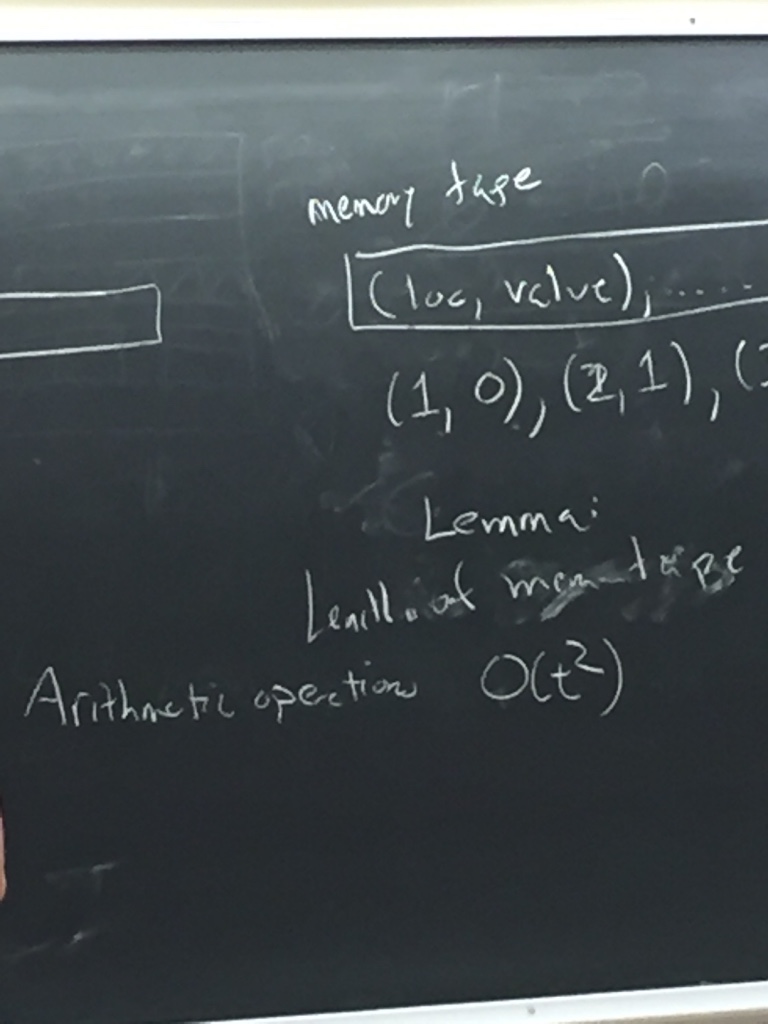 memory tape
(loc, value), .....
(1, 0), (2, 1), (
Lemma:
Length of mem tape
Arithmetic operations O(t²)